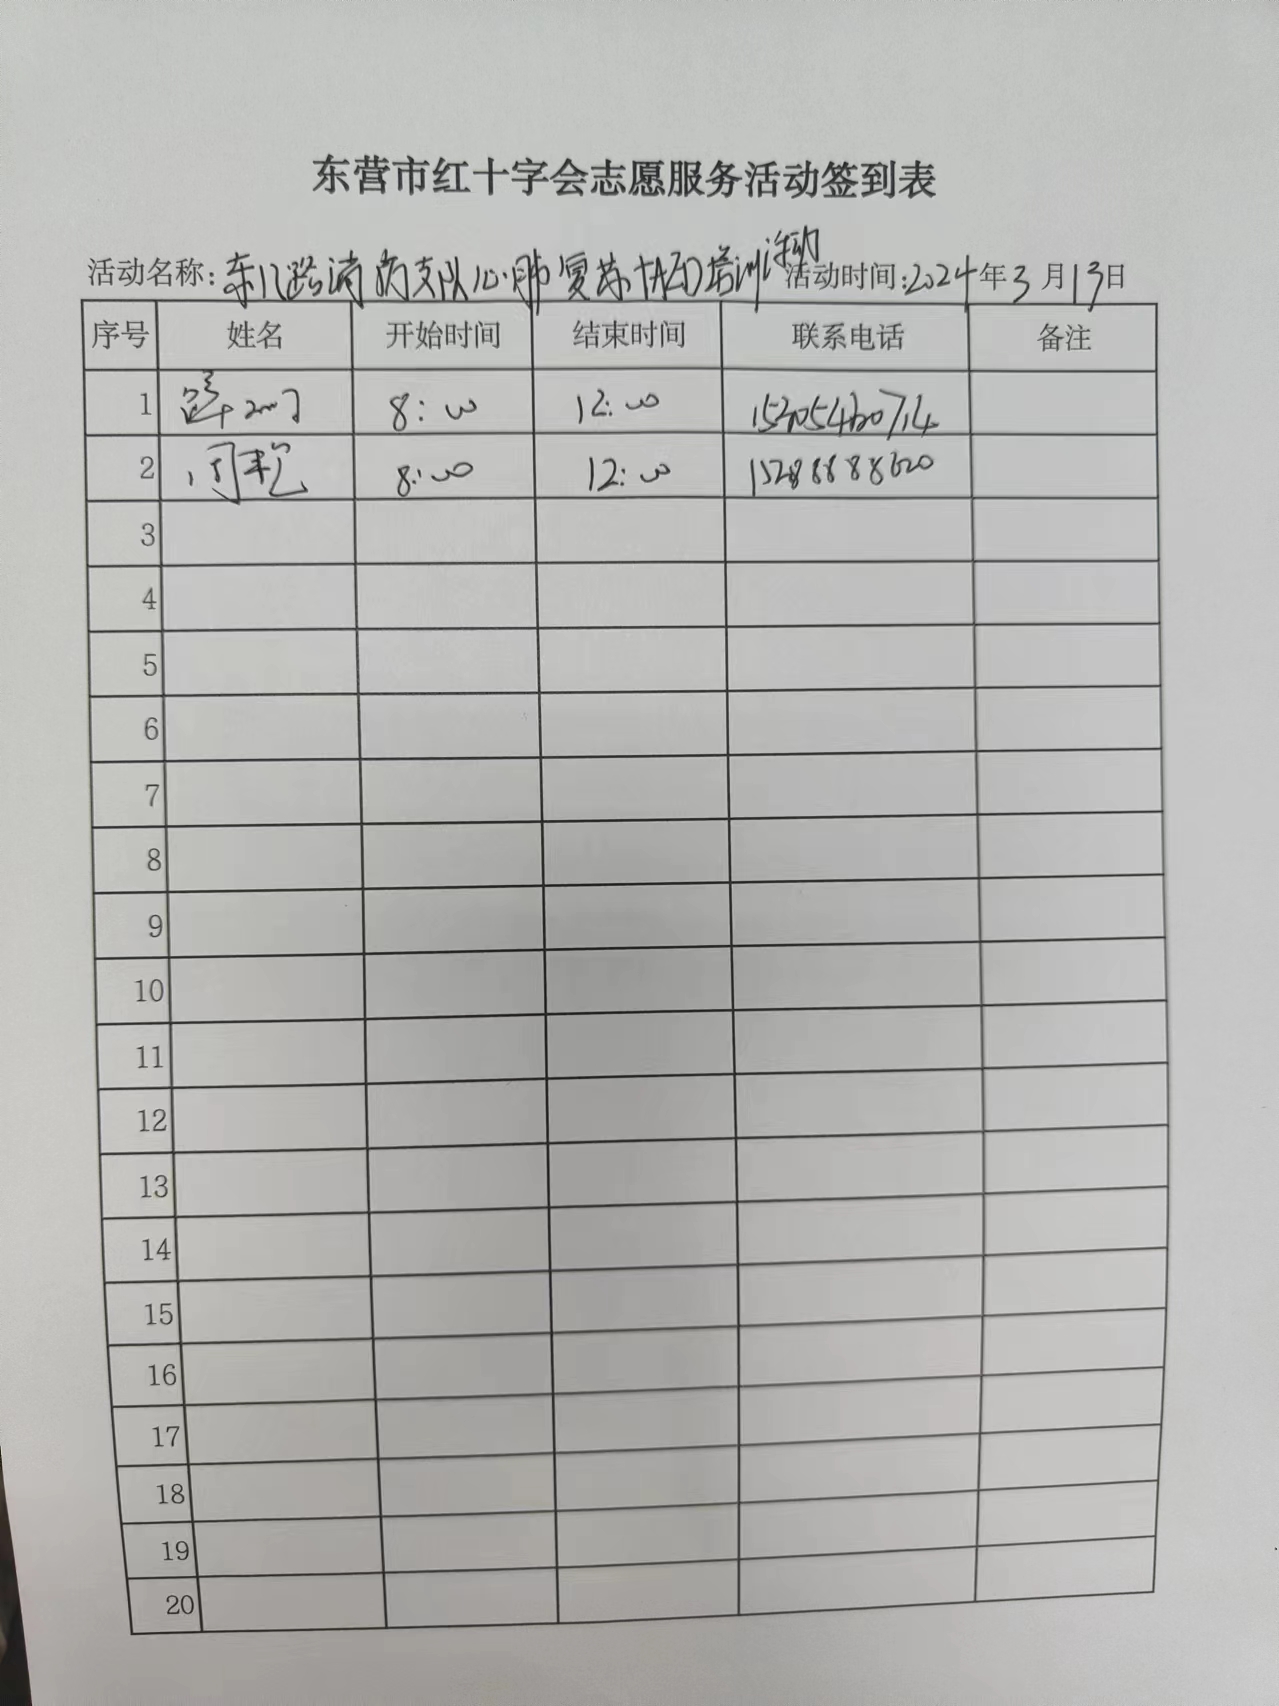 东营市红十字会志愿服务活动签到表
活动名称:东八路消防支队心肺复苏+AED培训活动 活动时间:2024年3月13日
序号 姓名 开始时间 结束时间 联系电话 备注
1 8:00 12:00
2 周艳 8:00 12:00 15288888620
3
4
5
6
7
8
9
10
11
12
13
14
15
16
17
18
19
20